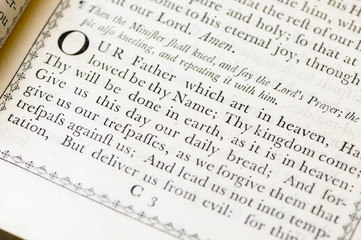 him, wh
are, and that the rest of our
pure and holy; so that at
come to his eternal joy, through
our Lord. Amen.
Then the Minister shall kneel, and say the Lord's Prayer; the
ple also kneeling, and repeating it with him.
OUR Father which art in heaven, Ha
lowed be thy Name; Thy kingdom come;
Thy will be done in earth, as it is in heaven:
Give us this day our daily bread; And for-
give us our treſpaſſes, as we forgive them that
treſpaſs againſt us; And lead us not into temp-
tation, But deliver us from evil: for thin
C 3